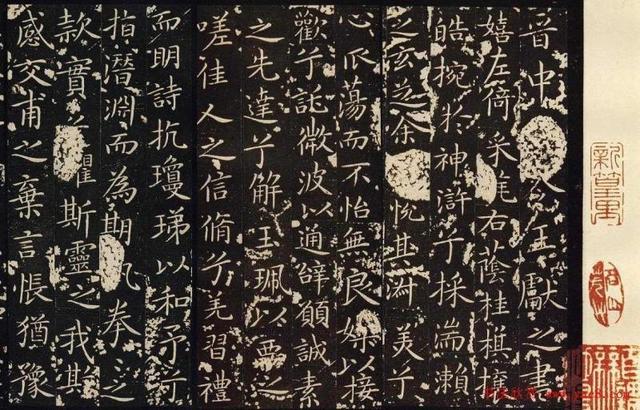 晉中王獻之書
嬉左倚采旄右蔭桂旗攘
皓捥於神滸兮採湍瀨
之玄芝余悅其淑美兮
心振蕩而不怡無良媒以接
歡兮託微波以通辭願誠素
之先達兮解玉珮以要之
嗟佳人之信脩兮羌習禮
而明詩抗瓊珶以和予兮
指潛淵而為期執拳之
款實兮懼斯靈之我欺
感交甫之棄言悵猶豫